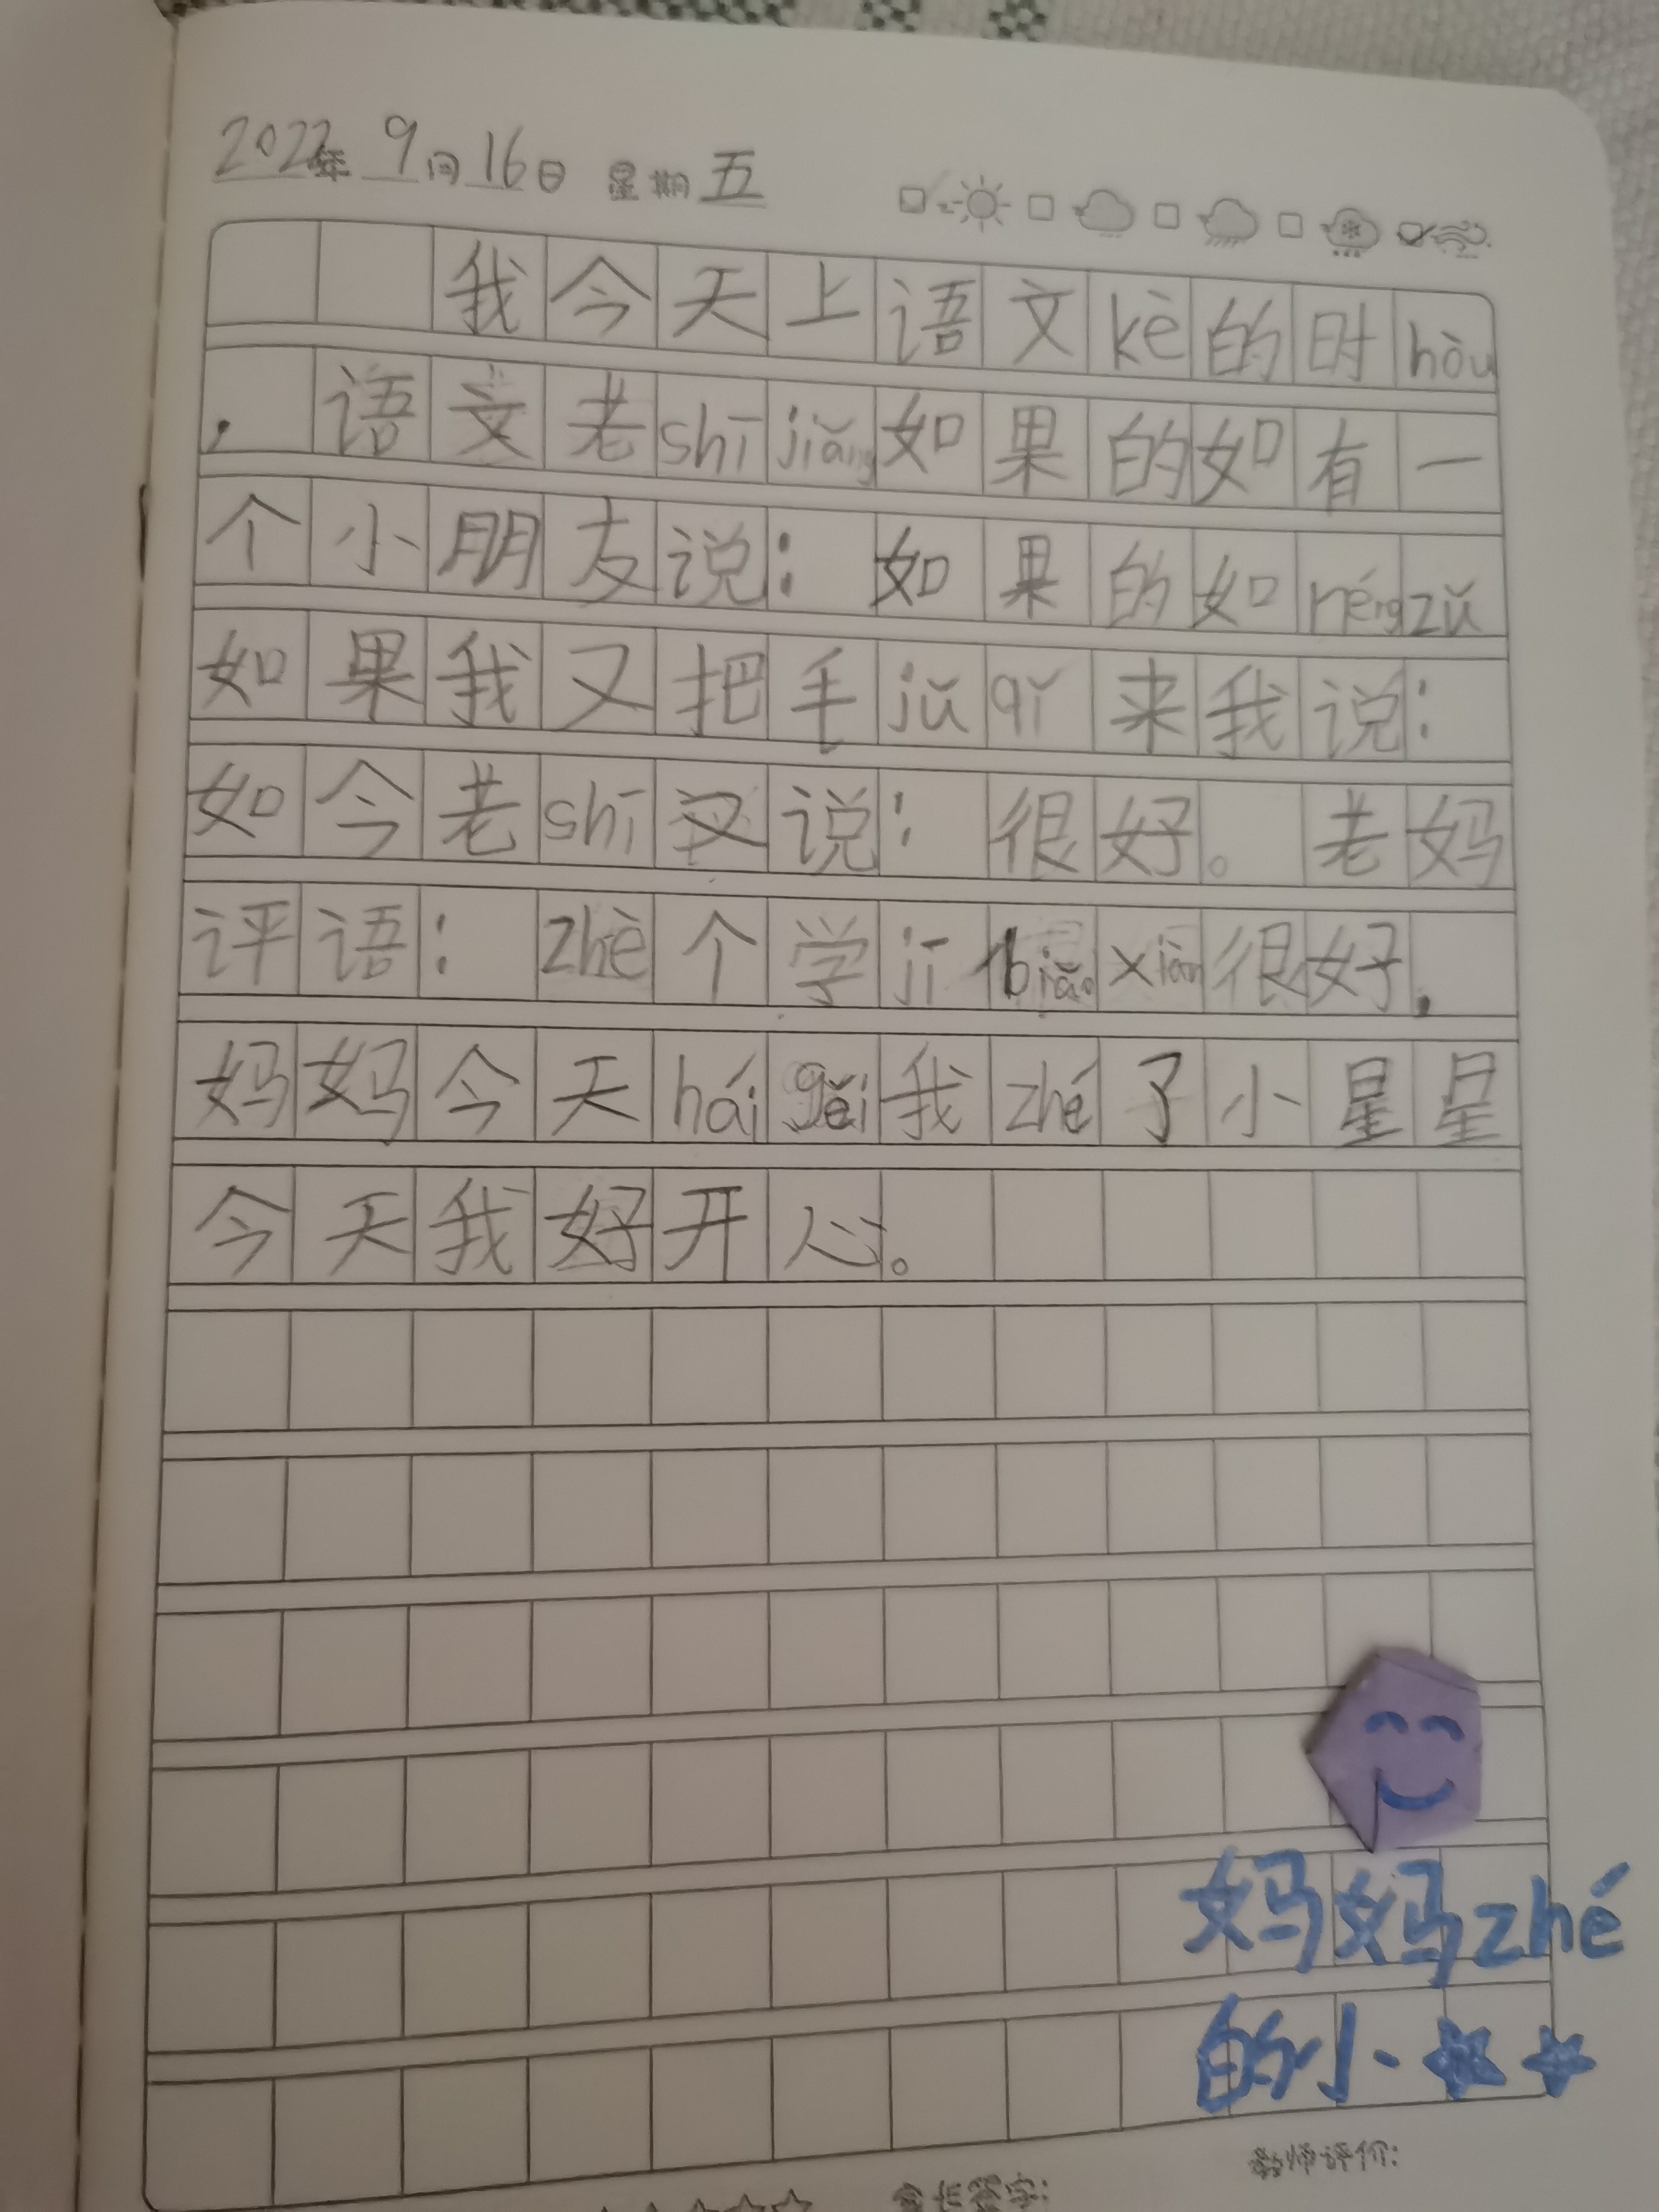 2022年 9月16日 星期五
我今天上语文kè的时hòu
，语文老shījiǎng如果的如有一
个小朋友说：如果的如néngzǔ
如果我又把手jǔqǐ来我说：
如今老shī又说：很好。老妈
评语：zhè个学jībiǎoxiàn很好.
妈妈今天háigěi我zhé了小星星
今天我好开心。
妈妈zhé
的小
教师评价:
家长签字: